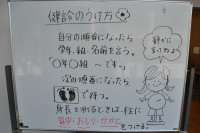 健診のうけ方
自分の順番になったら
学年、組、名前を言う。
「○年○組 ～です。」
次の順番になったら
で待つ。
身長をはかるときは、柱に
背中・おしり・かかと
をつける。
静かに